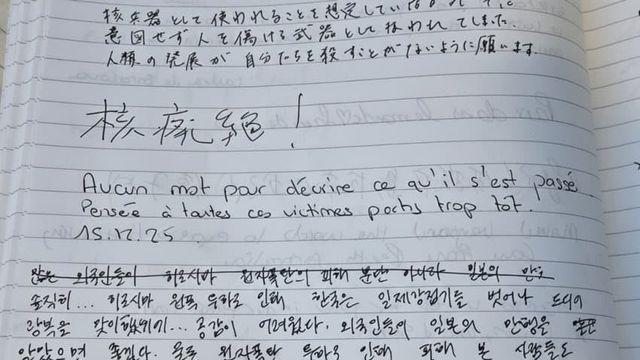 核兵器として使われることを想定していな
意図せず人を傷ける武器として扱われてしまた。
人類の発展が自分たちを殺すことがないように願います。
核廃絶!
Aucun mot pour décrire ce qu'il s'est passé.
Pensée à toutes ces victimes partis trop tot.
15.12.25
많은 외국인들이 히로시마 원자폭탄의 피해 뿐만 아니라 일본의 만
솔직히... 히로시마 원폭 투하로 인해 한국은 일제강점기를 벗어나 드디어
광복을 맞이했기에... 공감이 어려웠다. 외국인들이 일본의 만행을
알았으면 좋겠다. 물론 원자폭탄 투하로 인해 피해 본 사람들도